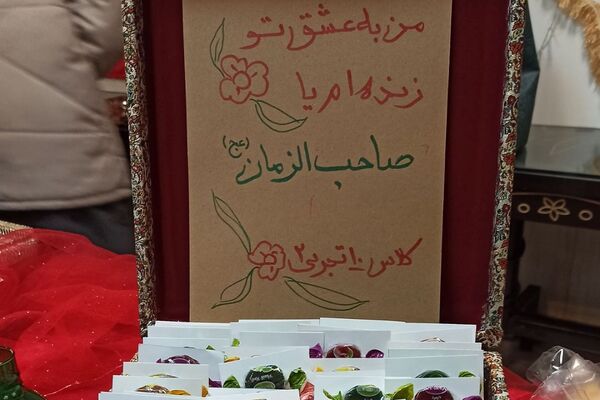 من به عشق تو
زنده ام یا
صاحب الزمان (عج)
کلاس ۱۰ تجربی ۲